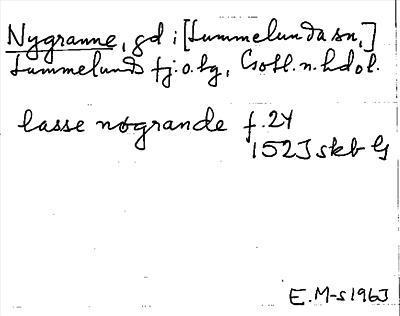 Nygranne, gd i [Lummelunda sn,]
Lummelunds tj.o.hg, Gotl.n.hd o l.
lasse nøgrande f.24
1523 skb G
E.M-s 1963